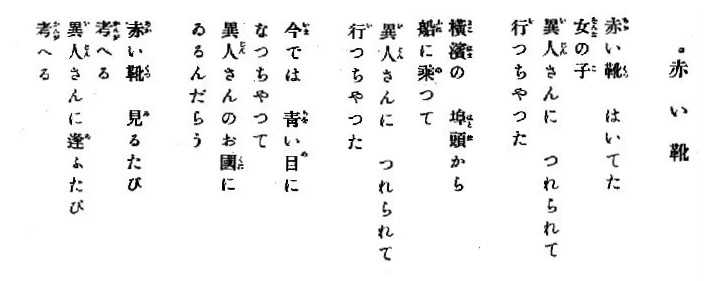 赤い靴
赤い靴 はいてた
女の子
異人さんに つれられて
行つちやつた
横濱の 埠頭から
船に乗つて
異人さんに つれられて
行つちやつた
今では 青い目に
なつちやつて
異人さんのお國に
ゐるんだらう
赤い靴 見るたび
考へる
異人さんに逢ふたび
考へる